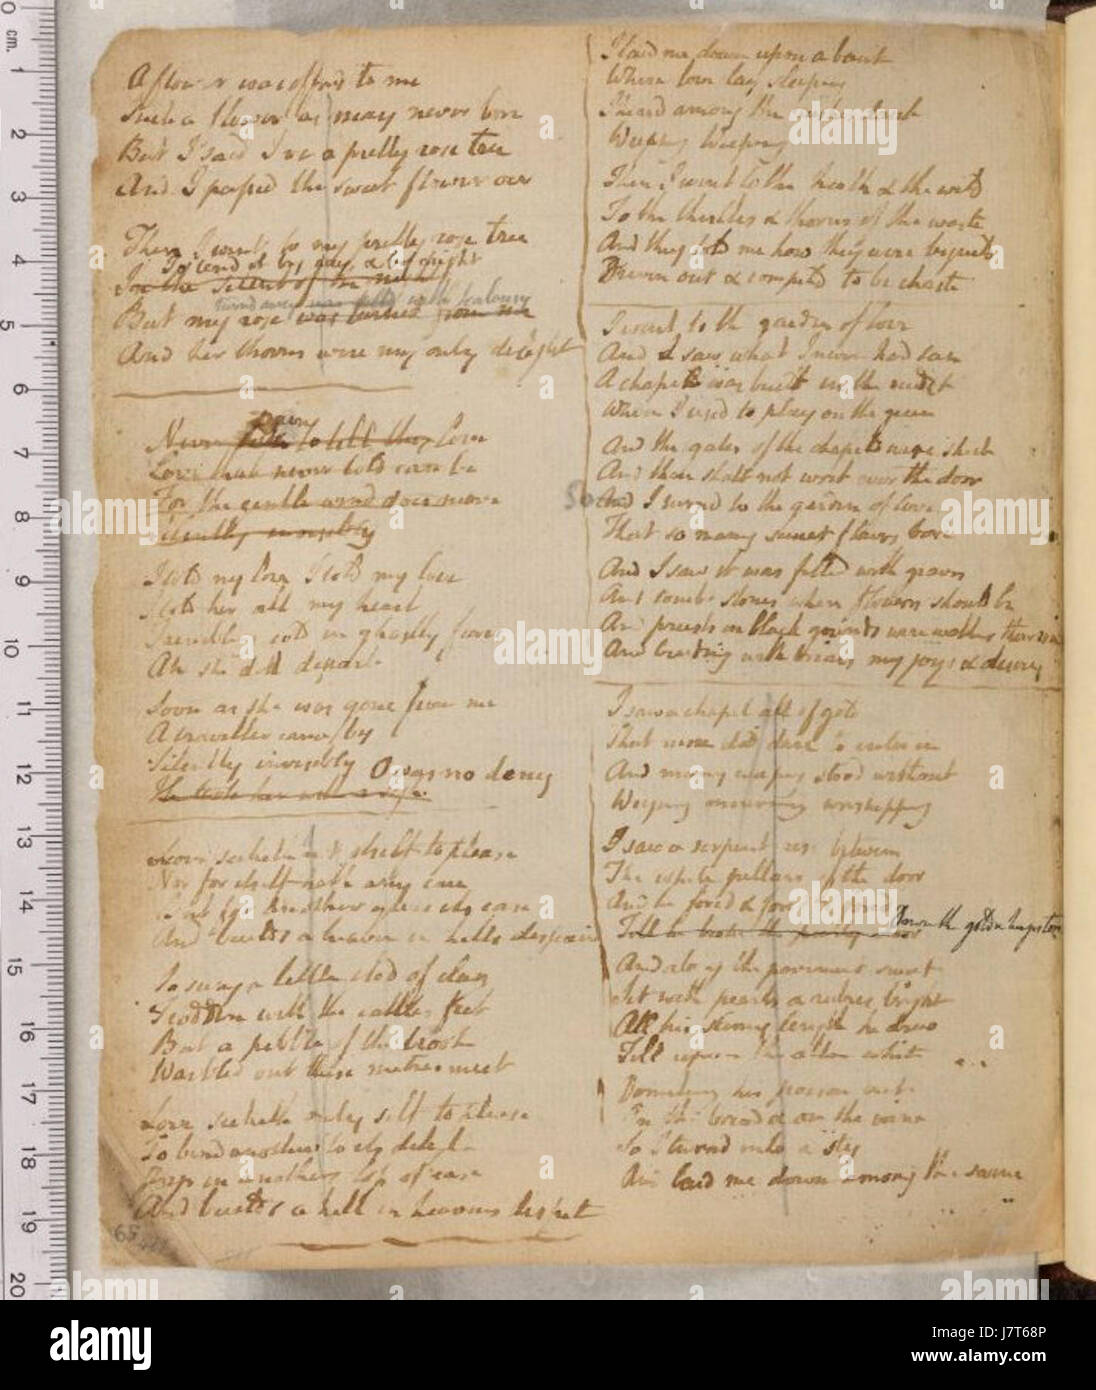 A flower was offerd to me
Such a flower as may never bore
But I said I've a pretty rose tree
And I passed the sweet flower oer
Then I went to my pretty rose tree
To tend it by day & by night
In the silent of the night
But my rose turnd away with jealousy
was turned from me
was filld
And her thorns were my only delight
pain
Never seek to tell thy love
Love that never told can be
For the gentle wind does move
Silently invisibly
I told my love I told my love
I told her all my heart
Trembling cold in ghastly fears
Ah she did depart
Soon as she was gone from me
A traveller came by
Silently invisibly O was no deny
He took her with a sigh
Love seeketh not itself to please
Nor for itself hath any care
But for another gives its ease
And builds a heaven in hells despair
So sung a little clod of clay
Trodden with the cattles feet
But a pebble of the brook
Warbled out these metres meet
Love seeketh only self to please
To bind another to its delight
Joys in anothers loss of ease
And builds a hell in heavens despite
65
I laid me down upon a bank
Where love lay sleeping
I heard among the rushes dank
Weeping Weeping
Then I went to the heath & the wild
To the thistles & thorns of the waste
And they told me how they were beguild
Driven out & compeld to be chaste
I went to the garden of love
And I saw what I never had seen
A chapel was built in the midst
Where I used to play on the green
And the gates of the chapel were shut
And thou shalt not writ over the door
So
And I turnd to the garden of love
That so many sweet flowers bore
And I saw it was filled with graves
And tomb-stones where flowers should be
And priests in black gounds were walking their rounds
And binding with briars my joys & desires
I saw a chapel all of gold
That none did dare to enter in
And many weeping stood without
Weeping mourning worshipping
I saw a serpent rise between
The white pillars of the door
And he forcd & forcd & forcd
Down the golden hinges tore
Till he broke the pearly door
And along the pavement sweet
Set with pearls & rubies bright
All his slimy length he drew
Till upon the altar white
Vomiting his poison out
On the bread & on the wine
So I turnd into a sty
And laid me down among the swine
0
cm.
1
2
3
4
5
6
7
8
9
10
11
12
13
14
15
16
17
18
19
20
alamy
a
alamy
Image ID: J7T68P
www.alamy.com